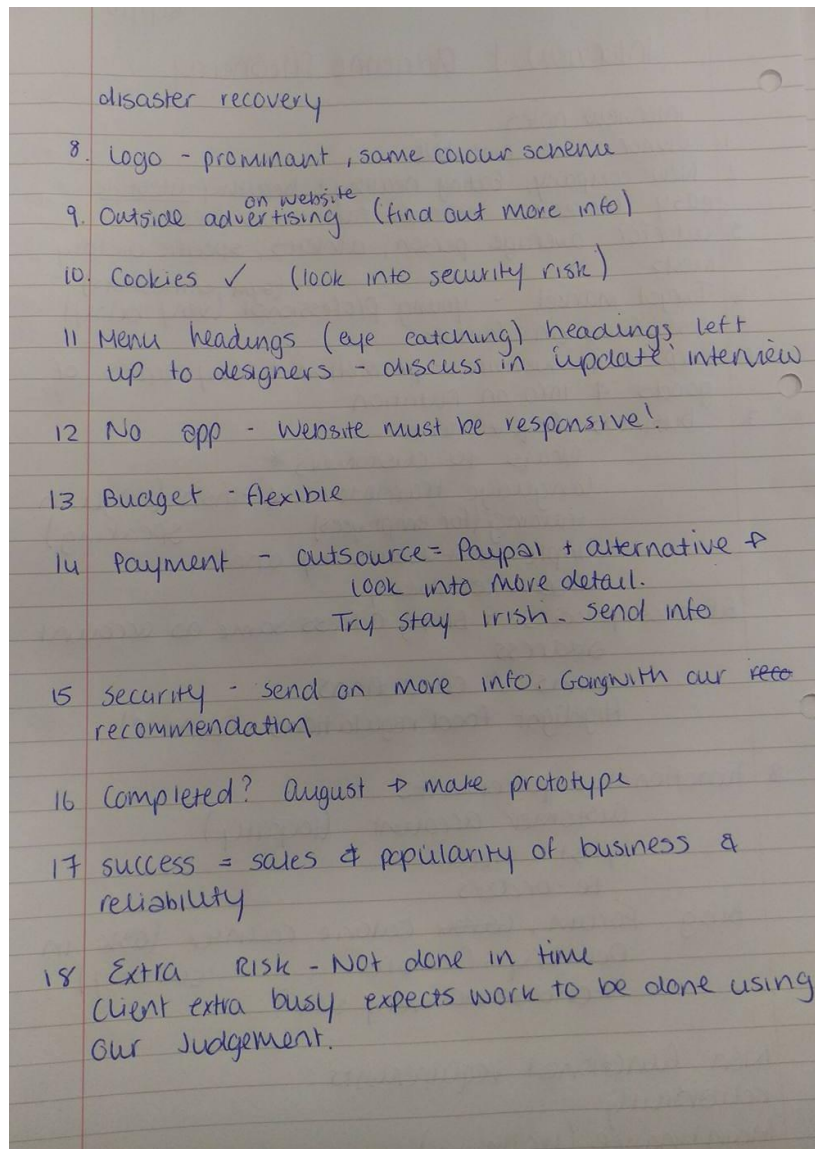 disaster recovery
8. Logo - prominant, same colour scheme
on website
9. Outside advertising (find out more info)
10. Cookies ✓ (look into security risk)
11 Menu headings (eye catching) headings left
up to designers - discuss in 'update' interview
12 No app - Website must be responsive!
13 Budget - flexible
14 Payment - outsource = Paypal + alternative →
look into more detail.
Try stay irish - send info
15 Security - send on more info. Going with our reco
recommendation
16 Completed? August → make prototype
17 success = sales & popularity of business &
reliability
18 Extra RISK - Not done in time
Client extra busy expects work to be done using
our Judgement.